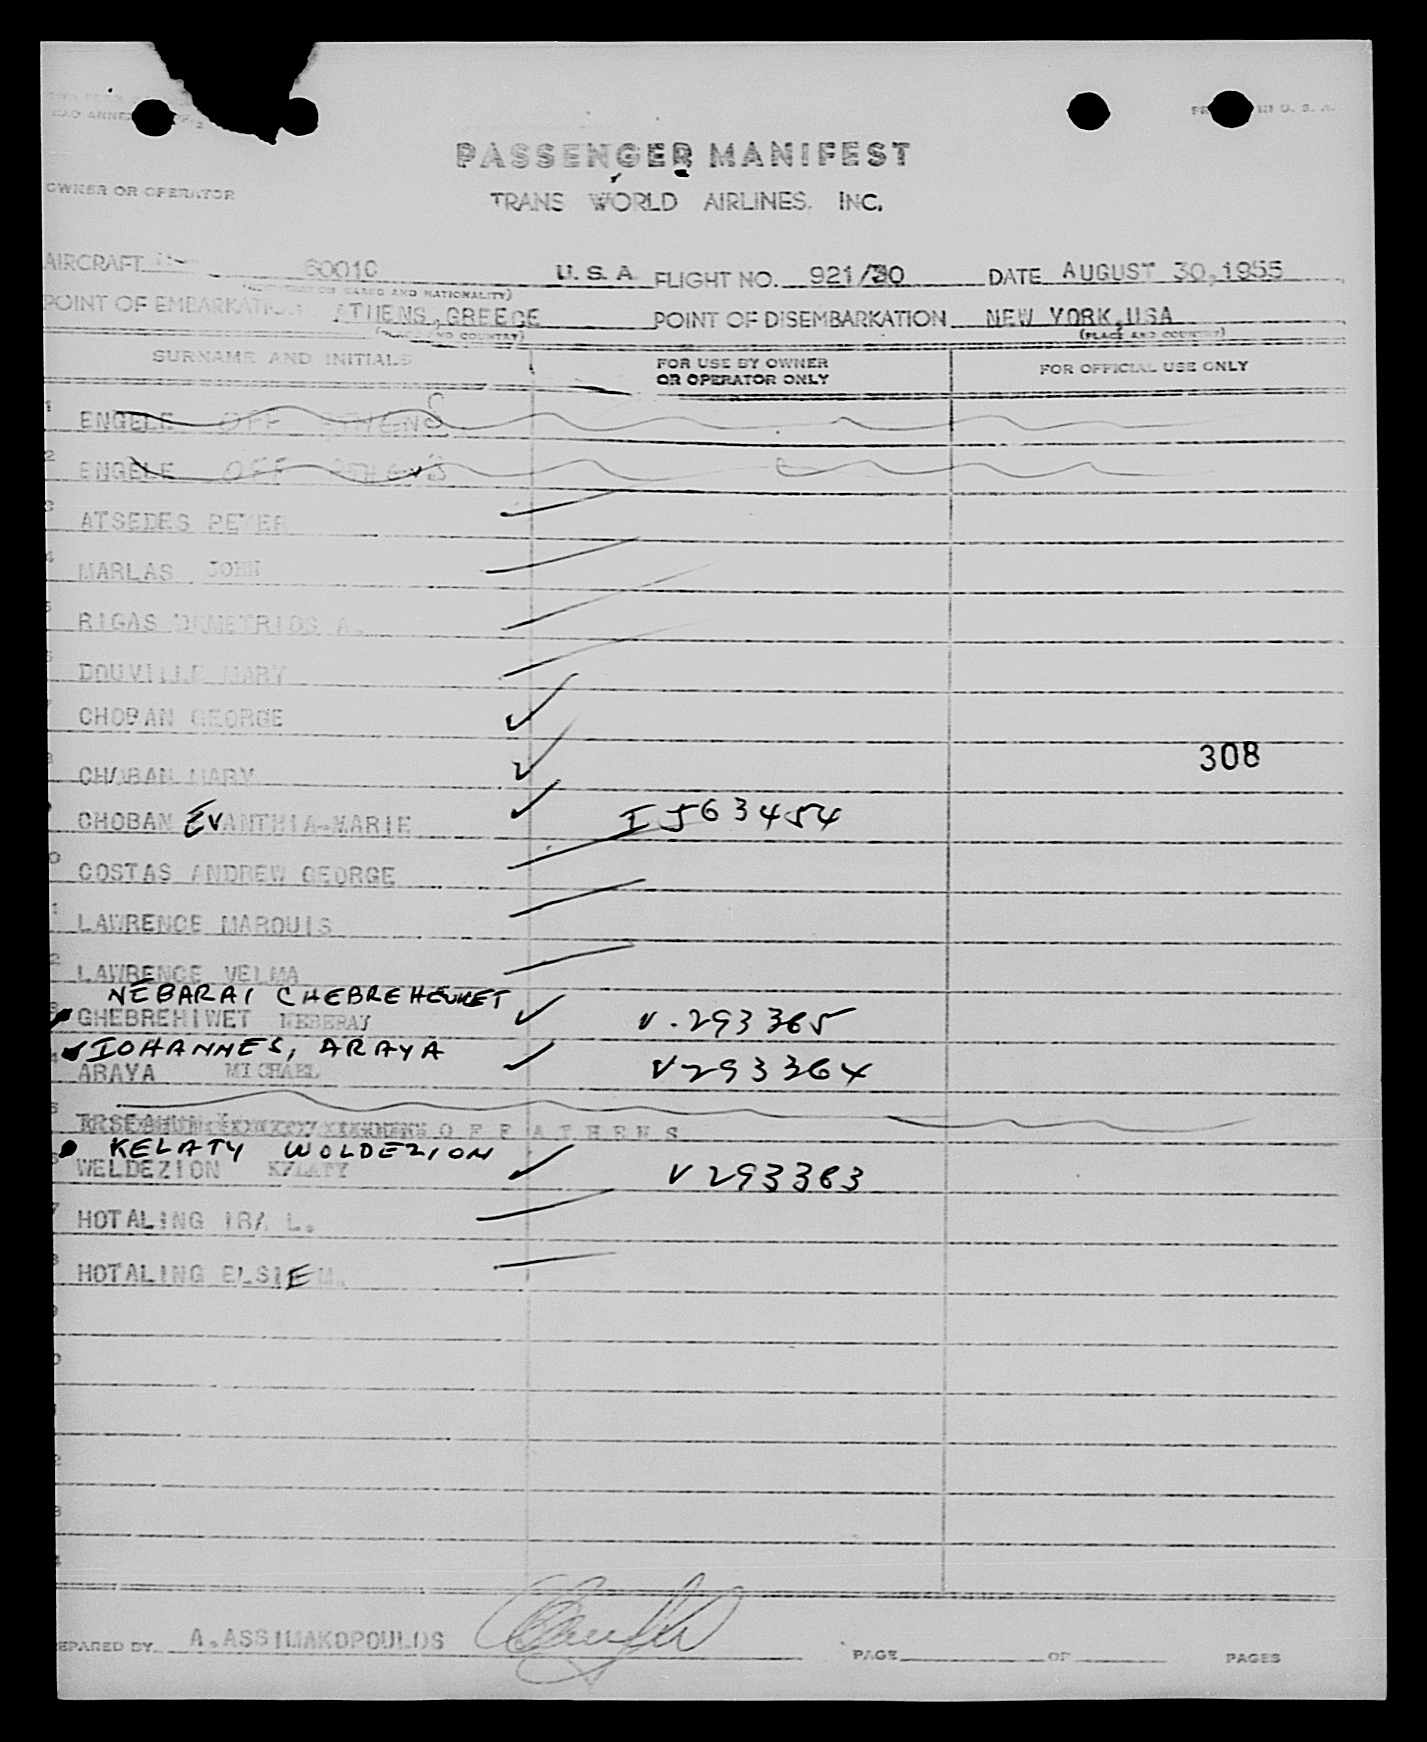 PASSENGER MANIFEST
TRANS WORLD AIRLINES, INC.
OWNER OR OPERATOR
AIRCRAFT 6001C U.S.A. FLIGHT NO. 921/30 DATE AUGUST 30, 1955
AND NATIONALITY)
POINT OF EMBARKATION ATHENS, GREECE POINT OF DISEMBARKATION NEW YORK, USA
AND COUNTRY) (PLACE AND COUNTRY)
SURNAME AND INITIALS FOR USE BY OWNER OR OPERATOR ONLY FOR OFFICIAL USE ONLY
1 ENGELE OFF ATHENS
2 ENGELE OFF ATHENS
3 ATSEDES PETER
4 MARLAS JOHN
5 RIGAS DEMETRIOS A.
6 DOUVILLE MARY
7 CHOBAN GEORGE
8 CHOBAN MARY 308
CHOBAN EVANTHIA-MARIE I 563454
0 COSTAS ANDREW GEORGE
1 LAWRENCE MARQUIS
2 LAWRENCE VELMA
NEBARAI CHEBREHEUKET
GHEBREHIWET NEBERAY V.293365
IOHANNES, ARAYA
ARAYA MICHAEL V293364
5 OFF ATHENS
KELATY WOLDEZION
WELDEZION KELATY V293363
7 HOTALING IRA L.
8 HOTALING ELSIE M.
PREPARED BY A. ASSIMAKOPOULOS PAGE OF PAGES